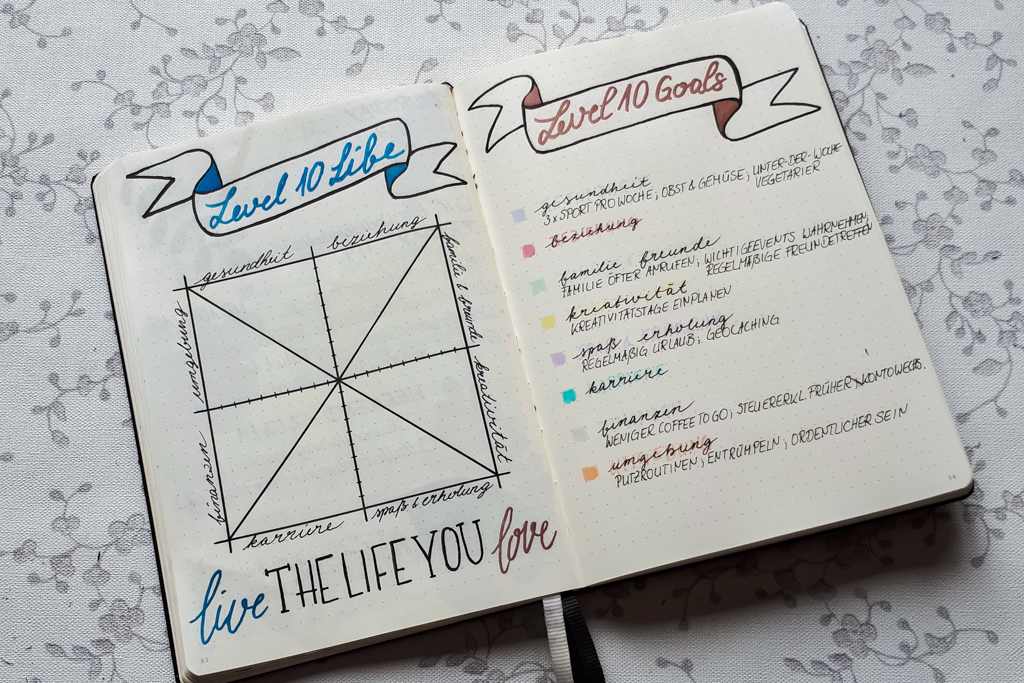 Level 10 Life
gesundheit
beziehung
familie & freunde
kreativität
spaß & erholung
karriere
finanzen
umgebung
live THE LIFE YOU love
83
Level 10 Goals
gesundheit
3x SPORT PRO WOCHE, OBST & GEMÜSE; UNTER-DER-WOCHE
VEGETARIER
beziehung
familie freunde
FAMILIE ÖFTER ANRUFEN; WICHTIGE EVENTS WAHRNEHMEN,
REGELMÄßIGE FREUNDETREFFEN
kreativität
KREATIVITÄTSTAGE EINPLANEN
spaß erholung
REGELMÄßIG URLAUB; GEOCACHING
karriere
finanzen
WENIGER COFFEE TO GO; STEUERERKL. FRÜHER; KONTOWECHS.
umgebung
PUTZROUTINEN; ENTRÜMPELN; ORDENTLICHER SEIN
84